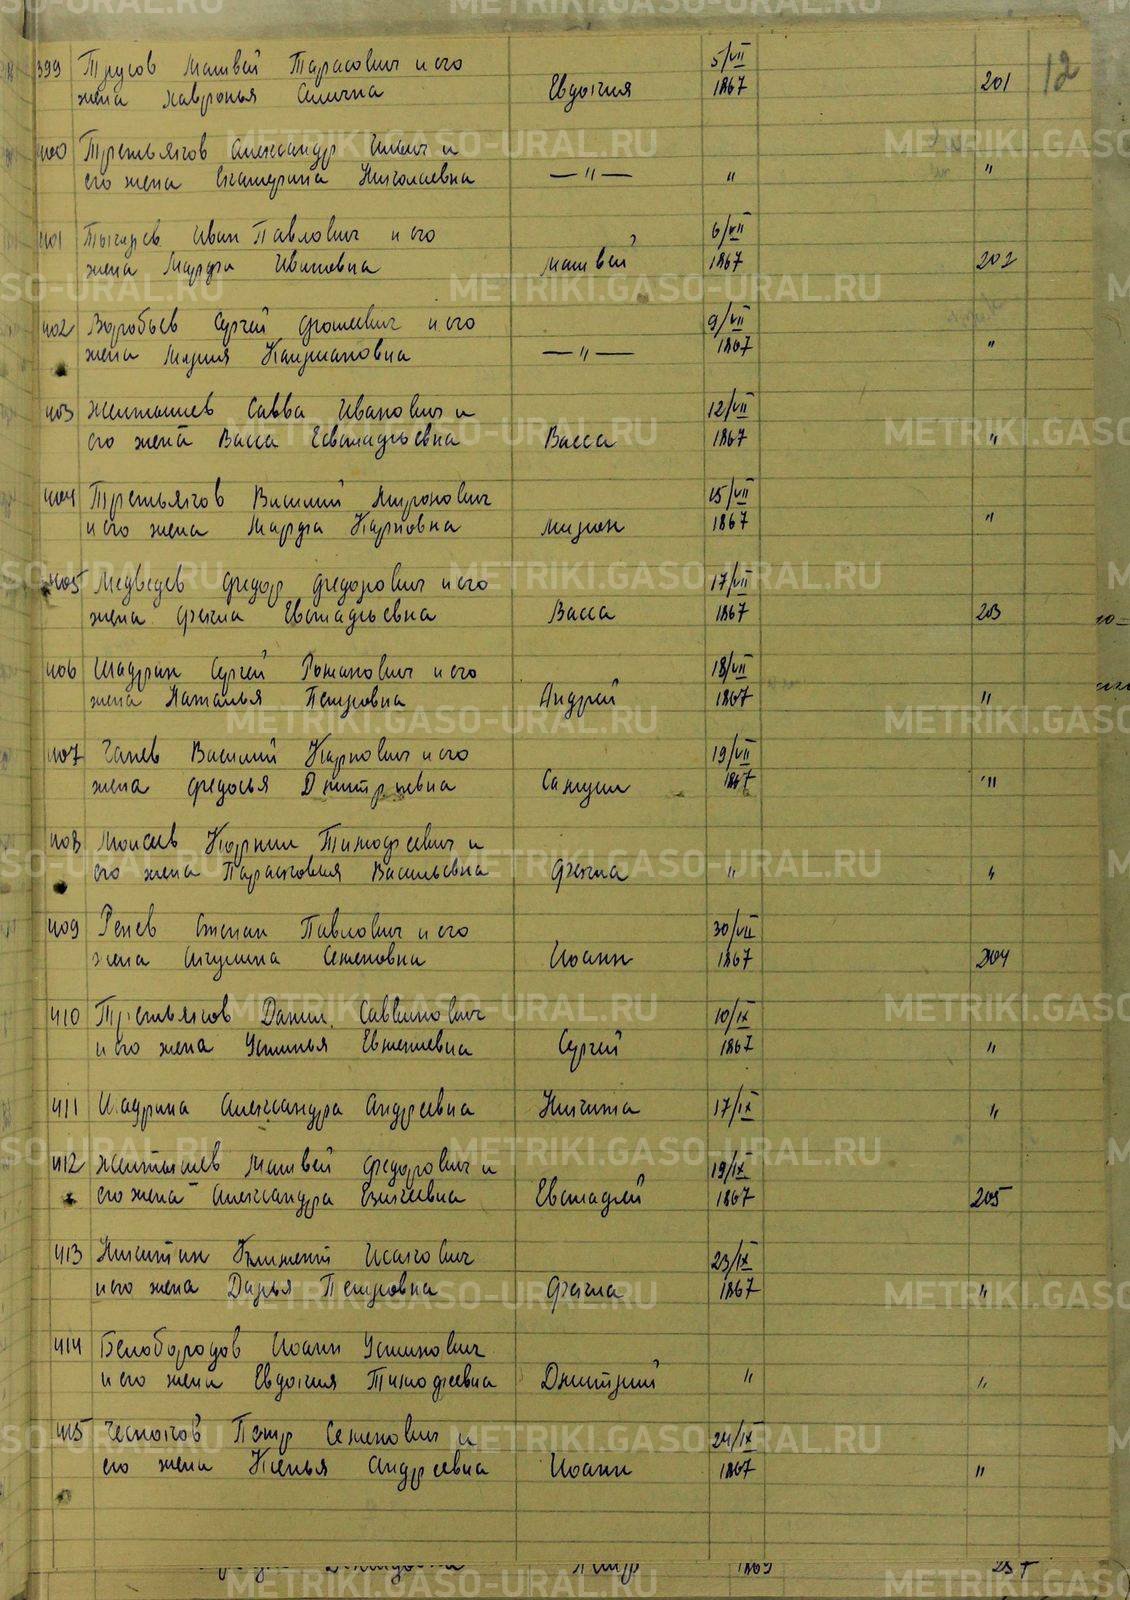 12
399 Трусов Матвей Тарасович и его 5/VII
жена Хавронья Ильична Евдокия 1867 201
400 Третьяков Александр Ильич и
его жена Екатерина Николаевна —"— " "
401 Иван Павлович и его 6/VII
жена Марфа Ивановна Матвей 1867 202
402 Воробьев Сергей Фомеевич и его 9/VII
жена Мария —"— 1867 "
403 Желтышев Савва Иванович и 12/VII
его жена Васса Евстафьевна Васса 1867 "
404 Третьяков Василий Миронович 15/VII
и его жена Марфа Карповна 1867 "
405 Медведев Федор Федорович и его 17/VII
жена Фекла Евстафьевна Васса 1867 203
406 Шадрин Сергей Романович и его 18/VII
жена Наталья Петровна Андрей 1867 "
407 Василий Карпович и его 19/VII
жена Федосья Дмитриевна Самуил 1867 "
408 Моисеев Корнил Тимофеевич и
его жена Парасковия Васильевна Фекла " "
409 Репев Степан Павлович и его 30/VII
жена Акулина Семеновна Иоанн 1867 204
410 Третьяков Данил Саввинович 10/IX
и его жена Устинья Евгениевна Сергей 1867 "
411 Шадрина Александра Андреевна Никита 17/IX "
412 Желтышев Матвей Федорович и 19/IX
его жена Александра Евстафий 1867 205
413 Никитин Климент Исакович 23/IX
и его жена Дарья Петровна Фекла 1867 "
414 Белобородов Иоанн Устинович
и его жена Евдокия Тимофеевна Дмитрий " "
415 Чесноков Петр Семенович и 24/IX
его жена Ксенья Андреевна Иоанн 1867 "
Петр 1869
METRIKI.GASO-URAL.RU